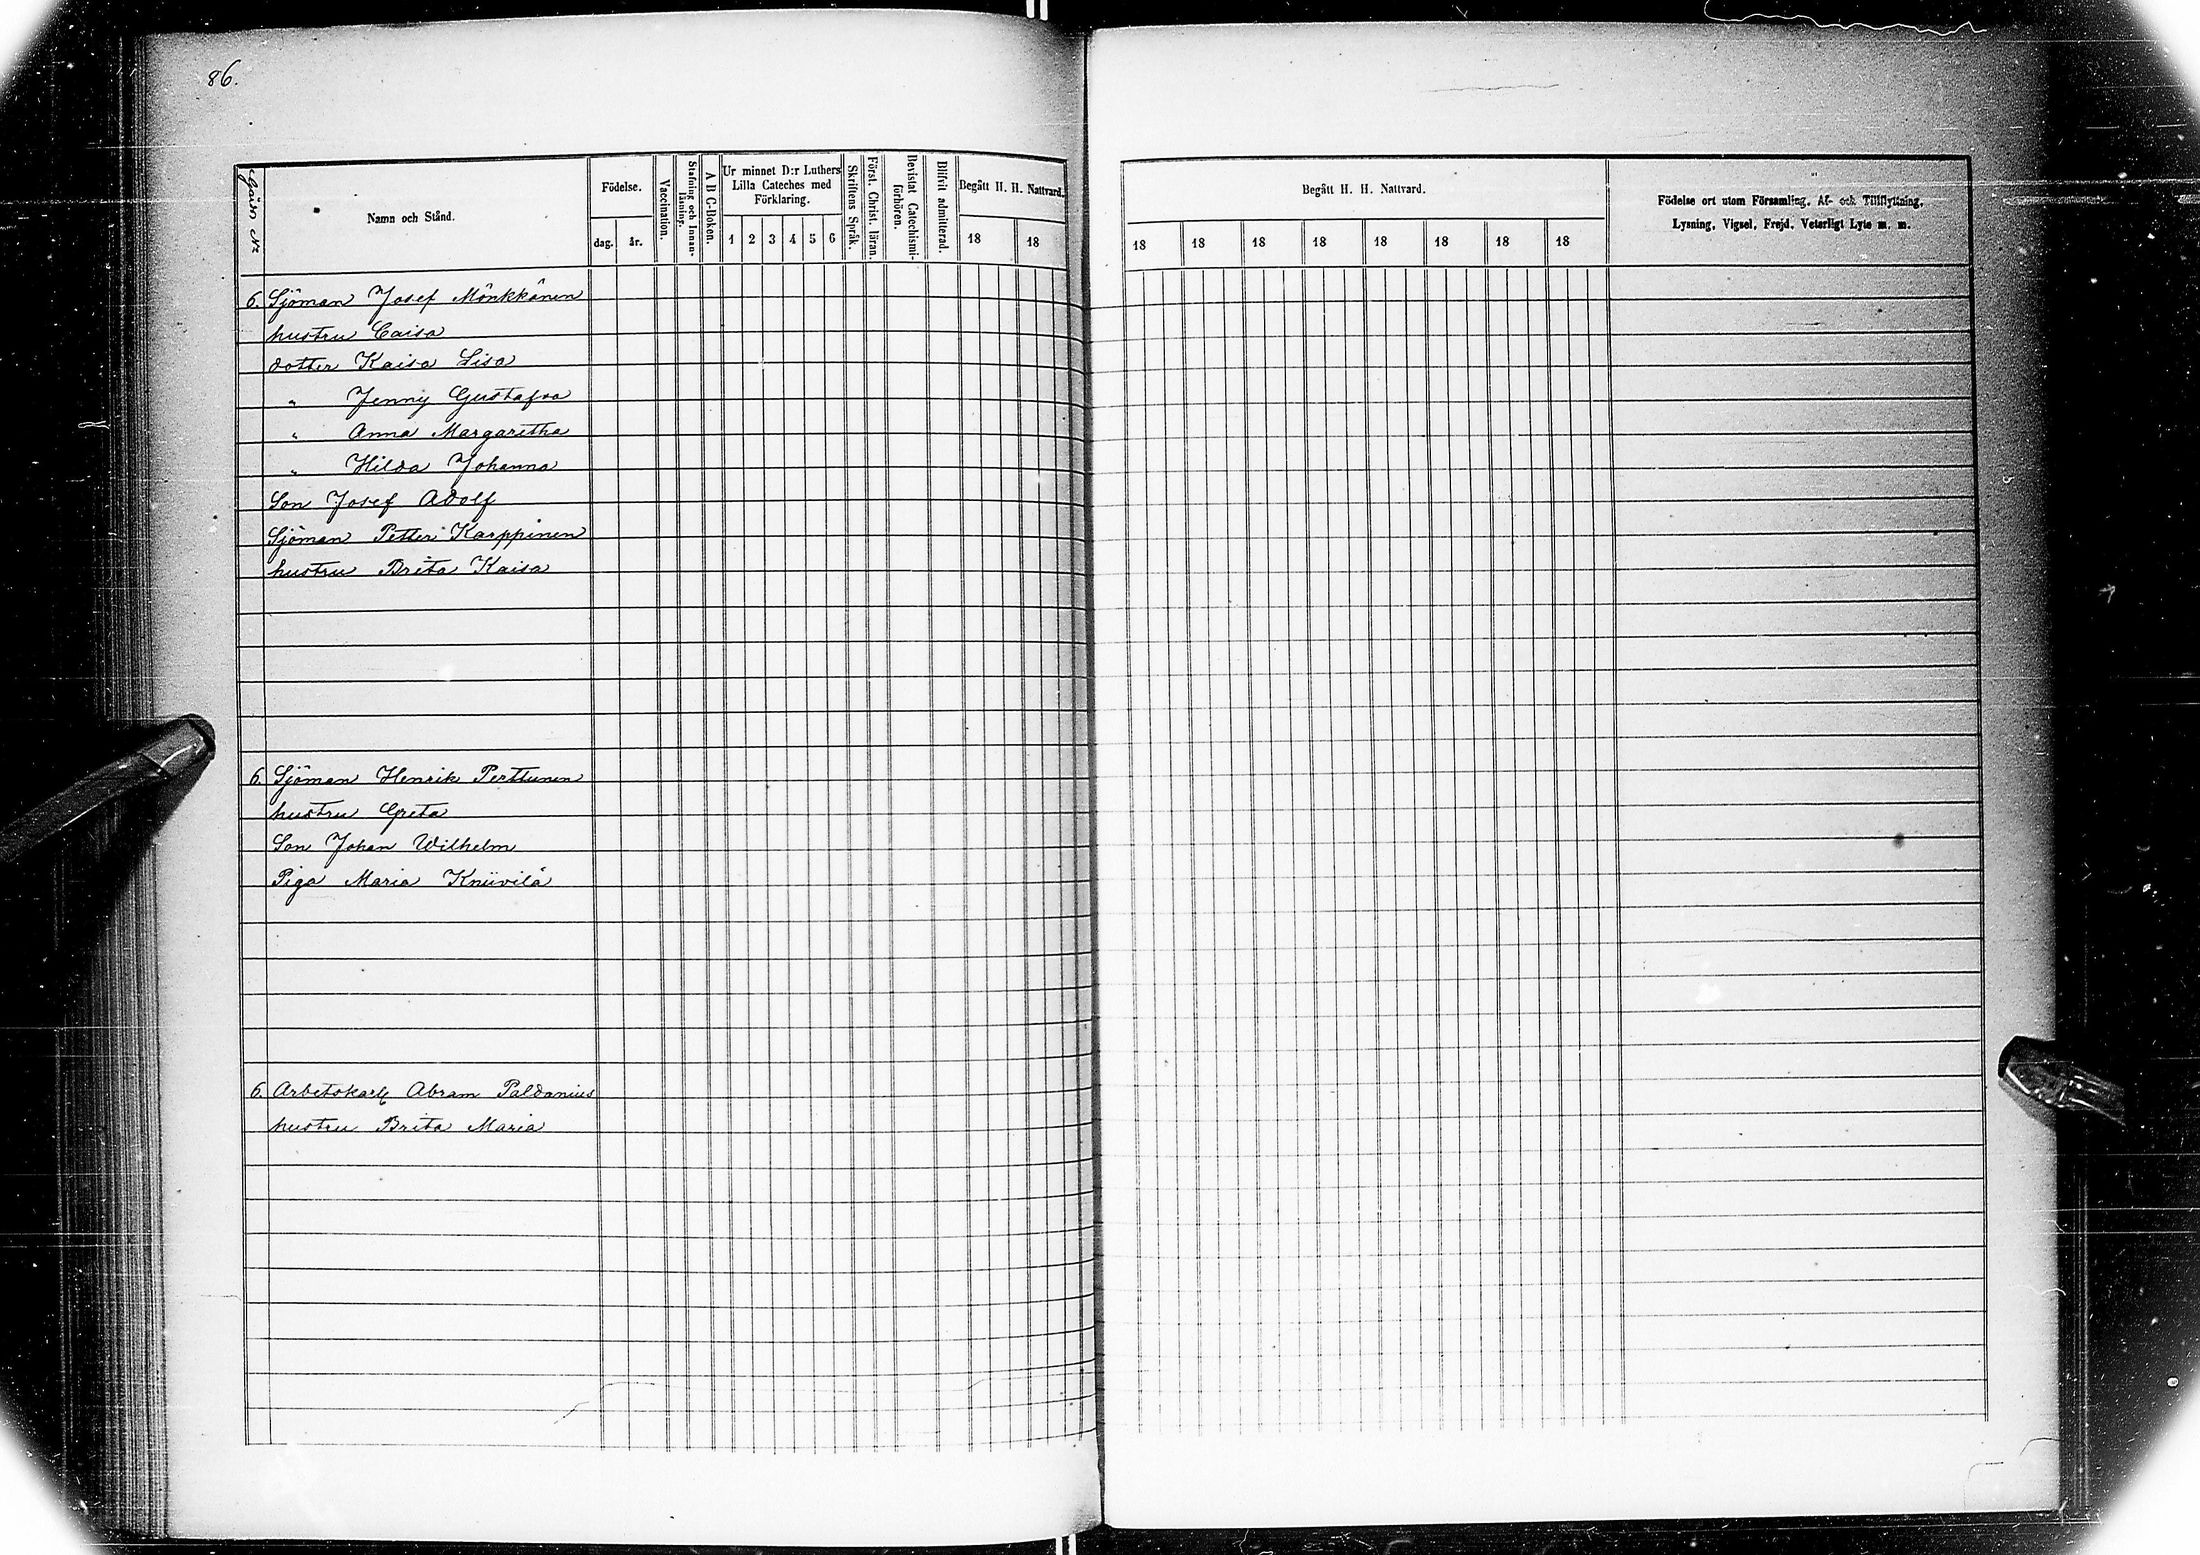 86.
Gårds Nr
Namn och Stånd.
Födelse.
dag.
år.
Vaccination.
Stafning och Innan-
läsning.
A B C-Boken.
Ur minnet D:r Luthers
Lilla Cateches med
Förklaring.
1 2 3 4 5 6
Skriftens Språk.
Först. Christ. läran.
Bevistat Catechismi-
förhören.
Blifvit admitterad.
Begått H. H. Nattvard.
18 18
Begått H. H. Nattvard.
18 18 18 18 18 18 18 18
Födelse ort utom Församling, Af- och Tillflyttning,
Lysning, Vigsel, Frejd, Veterligt Lyte m. m.
6. Sjöman Josef Mönkkönen
hustru Caisa
dotter Kaisa Lisa
" Jenny Gustafva
" Anna Margaretha
" Hilda Johanna
Son Josef Adolf
Sjöman Petter Karppinen
hustru Brita Kaisa
6. Sjöman Henrik Perttunen
hustru Greta
Son Johan Wilhelm
Piga Maria Kniivilä
6. Arbetskarl Abram Paldanius
hustru Brita Maria